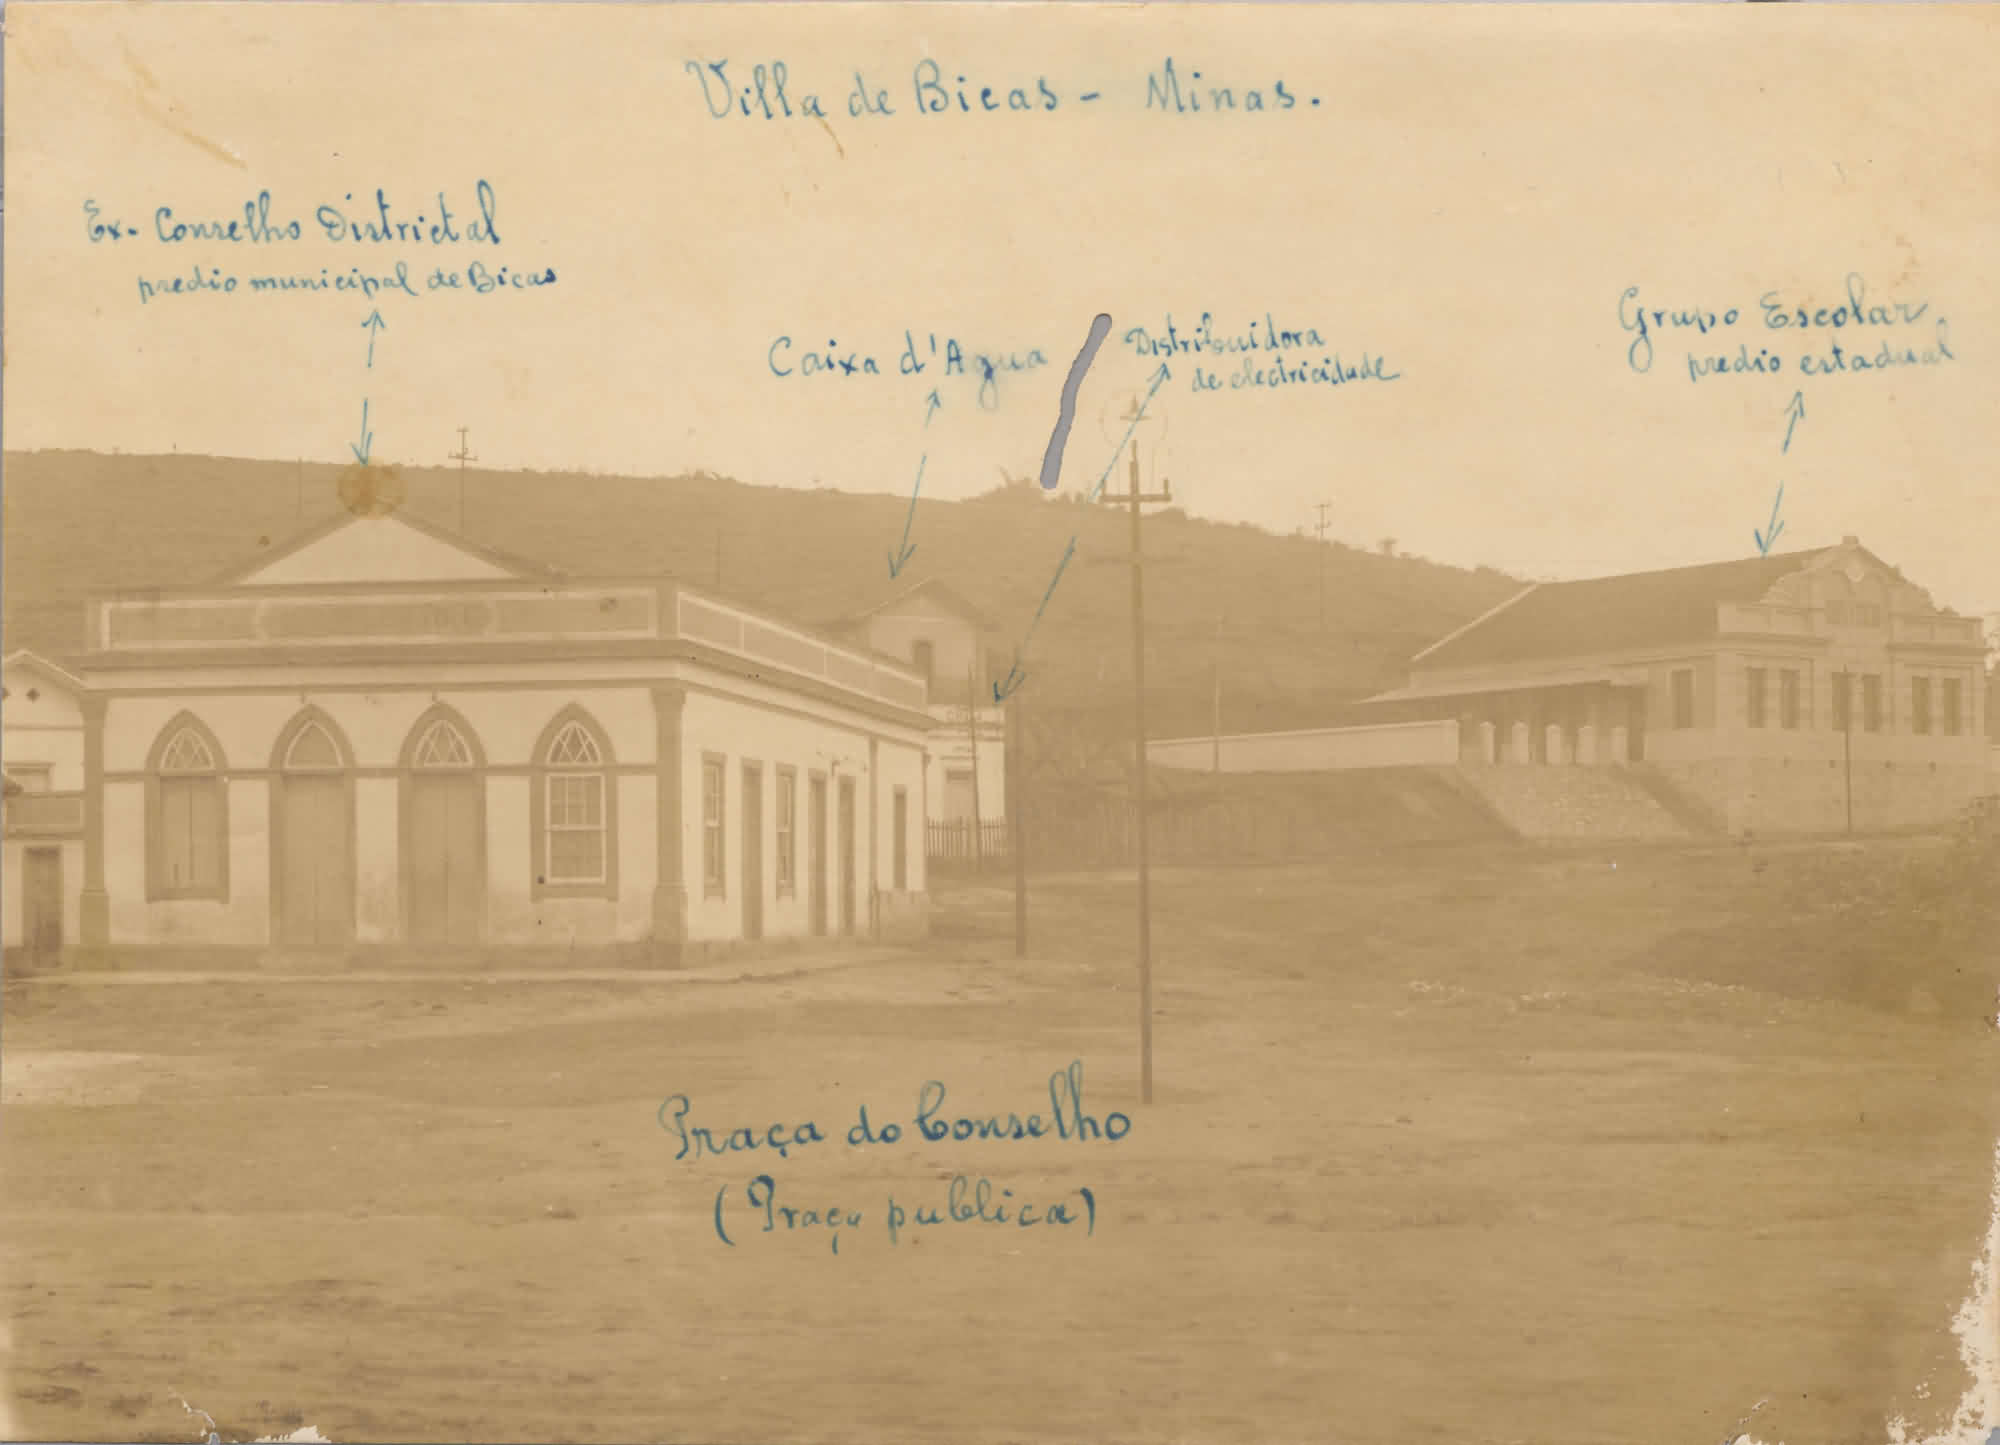 Villa de Bicas - Minas.
Ex. Conselho Districtal
predio municipal de Bicas
Caixa d'Agua
Distribuidora
de electricidade
Grupo Escolar.
predio estadual
Praça do Conselho
(Praça publica)